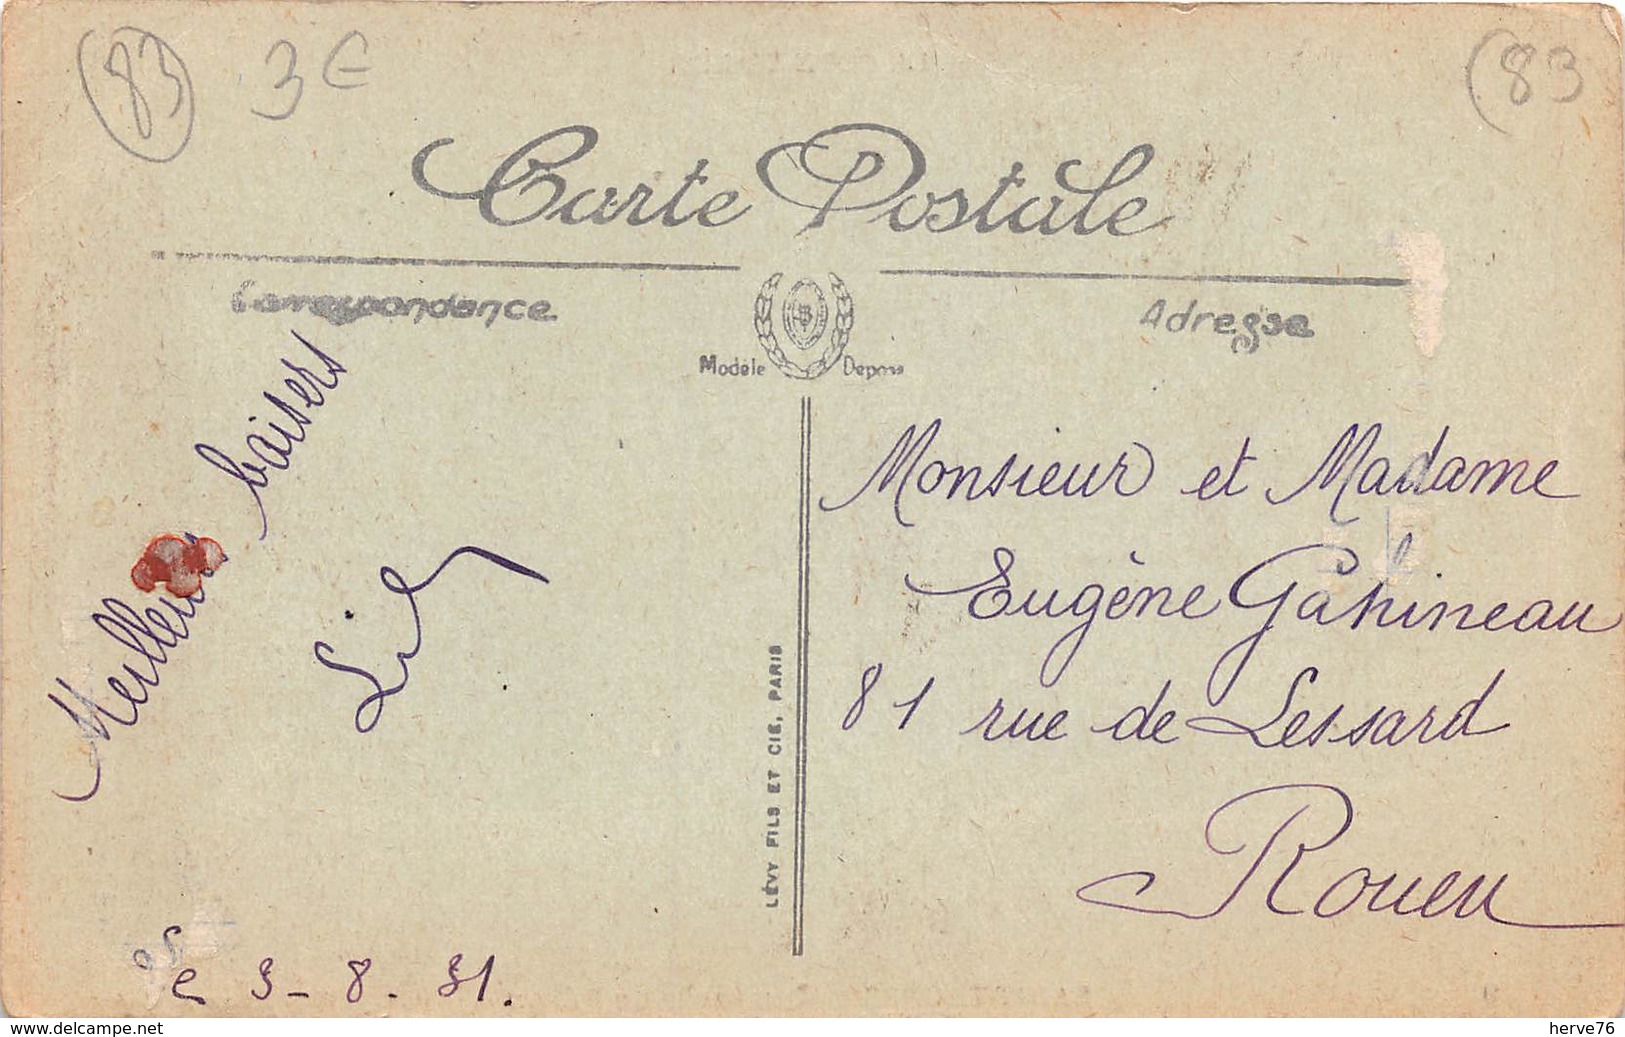 83
3€
(83
Carte Postale
Correspondance
Adresse
Modèle Déposé
Meilleurs baisers
Le 3-8.31.
LÉVY FILS ET CIE, PARIS
Monsieur et Madame
Eugène Gahineau
81 rue de Lessard
Rouen
www.delcampe.net
herve76